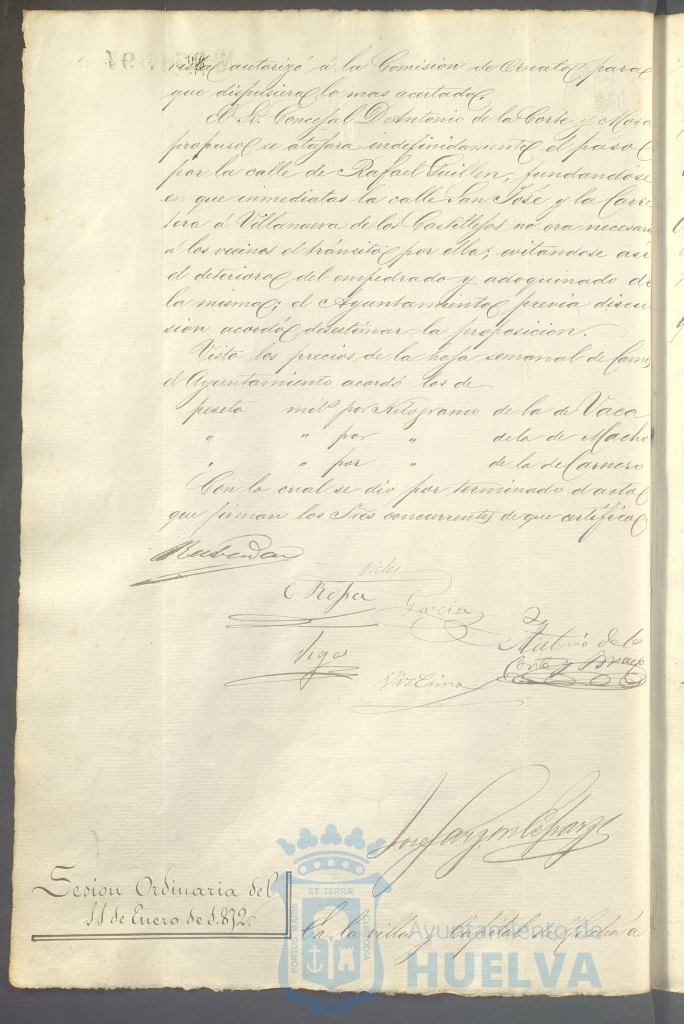 autorizó á la Comision de Ornato, para
que dispusiera lo mas acertado.
El Sr. Concejal D. Antonio de la Corte y Mora
propuso se atajara indefinidamente el paso
por la calle de Rafael Guillen, fundandose
en que inmediatas la calle San José y la Carre
tera á Villanueva de los Castillejos no era necesari
á los vecinos el tránsito por ella; evitandose asi
el deterioro del empedrado y adoquinado de
la misma; el Ayuntamiento previa discu
sion acordó desestimar la proposicion.
Visto los precios de la hoja semanal de Carnes
el Ayuntamiento acordó los de
peseta mils por Kilogramo de la de Vaca
" " por " de la de Macho
" " por " de la de Carnero
Con lo cual se dio por terminado el acto
que firman los Sres concurrentes de que certifico.
Garcia
Vega
Antonio de la
Corte y
Sesion Ordinaria del
11 de Enero de 1.872.
En la villa y Capital de Huelva á
ET TERRÆ
PORTUS MARIS
CUSTODIA
Ayuntamiento de
HUELVA